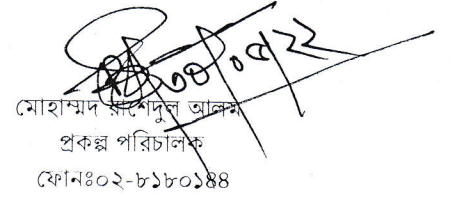 ৩০/০৫/২২
মোহাম্মদ রাশেদুল আলম
প্রকল্প পরিচালক
ফোনঃ০২-৮১৮০১৪৪